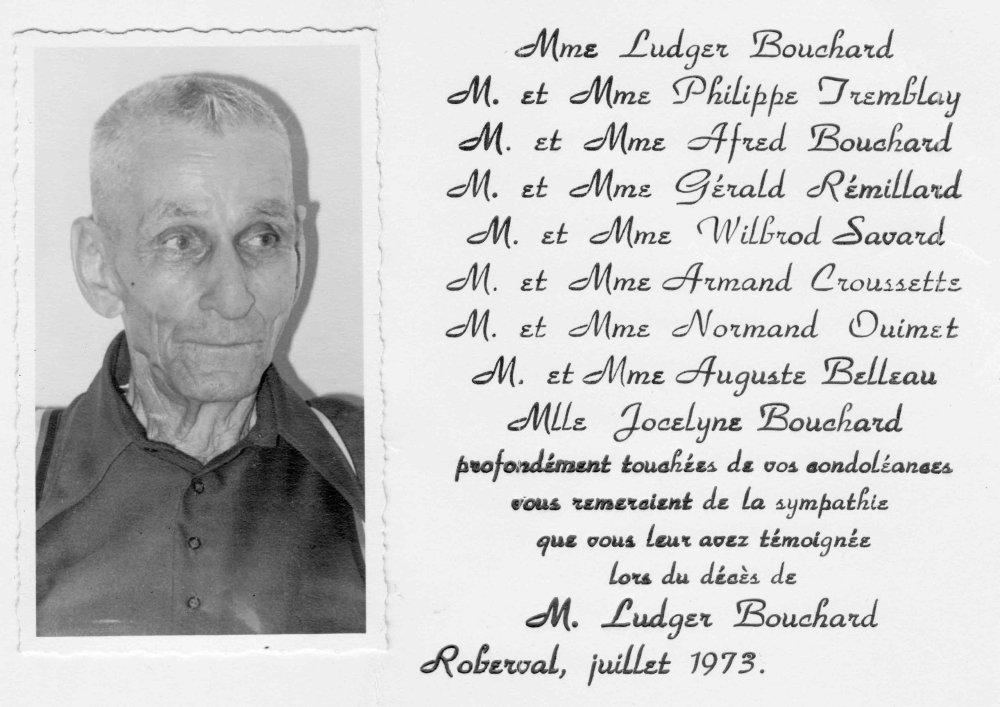 Mme Ludger Bouchard
M. et Mme Philippe Tremblay
M. et Mme Afred Bouchard
M. et Mme Gérald Rémillard
M. et Mme Wilbrod Savard
M. et Mme Armand Croussette
M. et Mme Normand Ouimet
M. et Mme Auguste Belleau
Mlle Jocelyne Bouchard
profondément touchées de vos condoléances
vous remercient de la sympathie
que vous leur avez témoignée
lors du décès de
M. Ludger Bouchard
Roberval, juillet 1973.